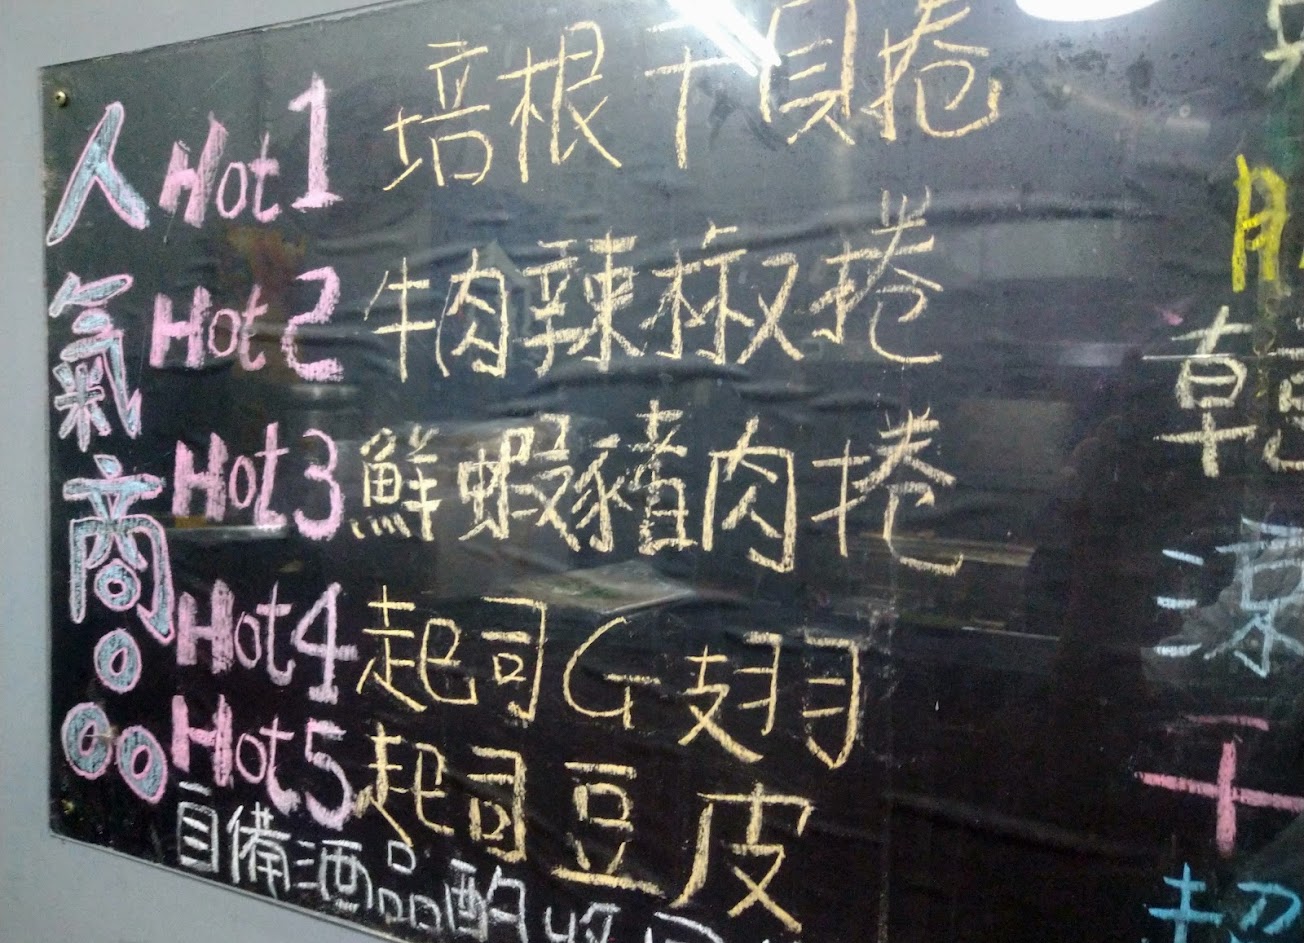 人氣商品
Hot1 培根干貝捲
Hot2 牛肉辣椒捲
Hot3 鮮蝦豬肉捲
Hot4 起司G翅
Hot5 起司豆皮
自備酒品酌收
韓
涼
干